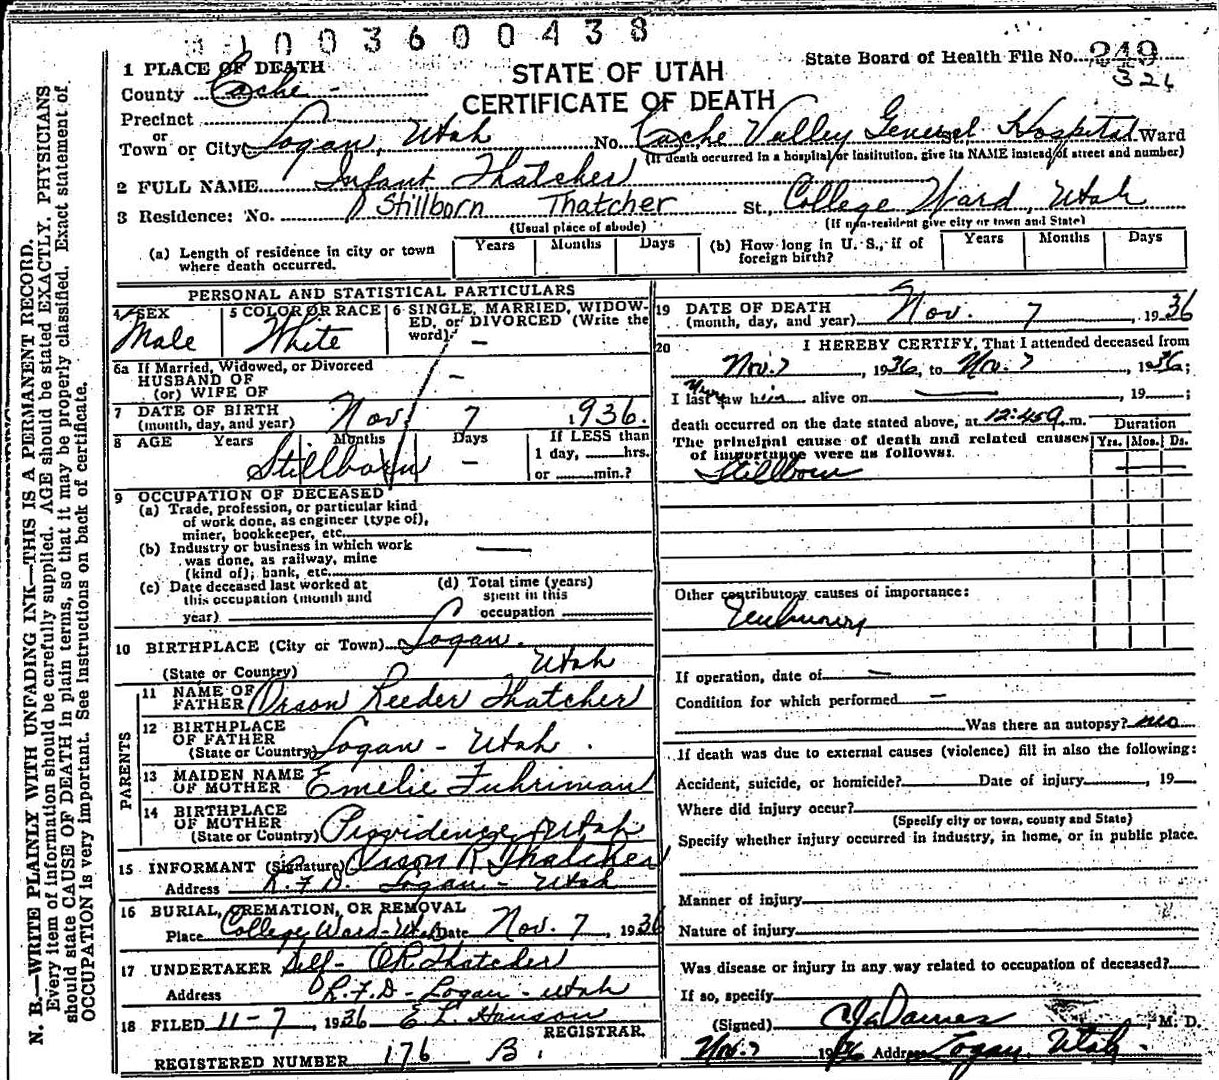 1003600438
State Board of Health File No. 249
326
1 PLACE OF DEATH
STATE OF UTAH
County Cache
CERTIFICATE OF DEATH
Precinct
or
Town or City Logan, Utah No. Cache Valley General Hospital Ward
(If death occurred in a hospital or institution, give its NAME instead of street and number)
2 FULL NAME Infant Thatcher
3 Residence: No. Stillborn Thatcher St., College Ward, Utah
(Usual place of abode) (If non-resident give city or town and State)
(a) Length of residence in city or town where death occurred. Years Months Days (b) How long in U. S., if of foreign birth? Years Months Days
PERSONAL AND STATISTICAL PARTICULARS
4 SEX 5 COLOR OR RACE 6 SINGLE, MARRIED, WIDOWED, or DIVORCED (Write the word)
Male White —
6a If Married, Widowed, or Divorced
HUSBAND OF
(or) WIFE OF —
7 DATE OF BIRTH
(month, day, and year) Nov. 7 1936.
8 AGE Years Months Days If LESS than
1 day, hrs.
or min.?
Stillborn —
9 OCCUPATION OF DECEASED
(a) Trade, profession, or particular kind
of work done, as engineer (type of),
miner, bookkeeper, etc.
(b) Industry or business in which work
was done, as railway, mine
(kind of); bank, etc.
(c) Date deceased last worked at
this occupation (month and
year)
(d) Total time (years)
spent in this
occupation
10 BIRTHPLACE (City or Town) Logan.
(State or Country) Utah
PARENTS
11 NAME OF
FATHER Orson Reeder Thatcher
12 BIRTHPLACE
OF FATHER
(State or Country) Logan - Utah.
13 MAIDEN NAME
OF MOTHER Emelie Fuhriman
14 BIRTHPLACE
OF MOTHER
(State or Country) Providence, Utah
15 INFORMANT (Signature) Orson R Thatcher
Address R.F.D. Logan - Utah
16 BURIAL, CREMATION, OR REMOVAL
Place College Ward - Utah Date Nov. 7, 1936
17 UNDERTAKER Self - OR Thatcher
Address R.F.D - Logan - Utah
18 FILED 11-7, 1936 E L Hanson
REGISTRAR.
REGISTERED NUMBER 176 B.
19 DATE OF DEATH
(month, day, and year) Nov. 7, 1936
20 I HEREBY CERTIFY, That I attended deceased from
Nov. 7, 1936, to Nov. 7, 1936;
I last saw him alive on —, 19—;
death occurred on the date stated above, at 12:45 a.m.
The principal cause of death and related causes
of importance were as follows:
Duration
Yrs. Mos. Ds.
Stillborn
Other contributory causes of importance:
If operation, date of —
Condition for which performed —
Was there an autopsy? no
If death was due to external causes (violence) fill in also the following:
Accident, suicide, or homicide? Date of injury, 19
Where did injury occur?
(Specify city or town, county and State)
Specify whether injury occurred in industry, in home, or in public place.
Manner of injury
Nature of injury
Was disease or injury in any way related to occupation of deceased?
If so, specify
(Signed) M. D.
Nov. 7 1936 Address Logan, Utah.
N. B.—WRITE PLAINLY WITH UNFADING INK—THIS IS A PERMANENT RECORD.
Every item of information should be carefully supplied. AGE should be stated EXACTLY. PHYSICIANS
should state CAUSE OF DEATH in plain terms, so that it may be properly classified. Exact statement of
OCCUPATION is very important. See instructions on back of certificate.